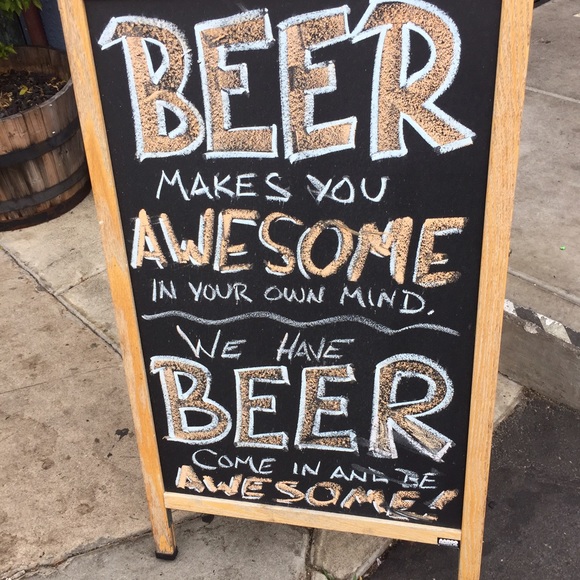 BEER
MAKES YOU
AWESOME
IN YOUR OWN MIND.
WE HAVE
BEER
COME IN AND BE
AWESOME!